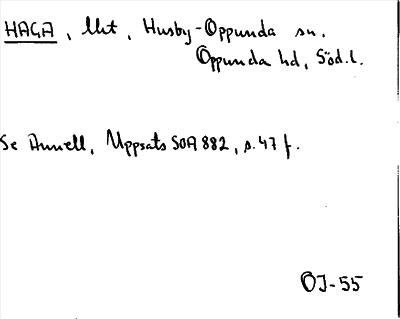 HAGA, lht, Husby-Oppunda sn.
Oppunda hd, Söd.l.
Se Annell, Uppsats SOA 882, s. 47 f.
OJ-55